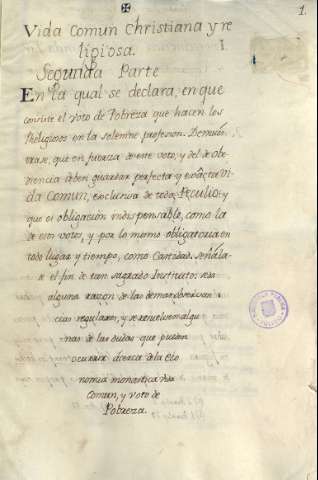 1.
Vida Comun Christiana y re
ligiosa. 1.
Segunda Parte
En la qual se declara, en que
consiste el voto de Pobreza que hacen los
Religiosos en la solemne profesion. Demues
trase, que en fuerza de este voto, y del de obe
diencia deben guardar perfecta y exacta vi
da Comun, exclusiva de todo Peculio: y
que es obligación indispensable, como la
de estos votos, y por lo mismo obligatoria en
todo lugar y tiempo, como Castidad. Señala
se el fin de tan sagrado Instituto: se da
alguna razon de las
cias regulares, y se resuelven algu
nas de las dudas que pueden
ocurrir acerca de la Eco
nomia monastica vida
comun, y voto de
Pobreza.